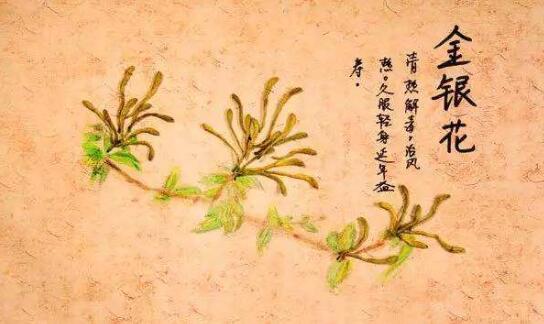 金银花
清热解毒，治风
热。久服轻身延年益
寿。